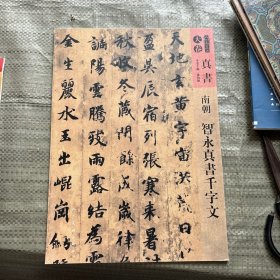 真書
南朝
智永真書千字文
天地玄黃宇宙洪荒日
盈昃辰宿列張寒来暑
秋收冬藏閏餘成歲律
調陽雲騰致雨露結為
金生麗水玉出崐崗